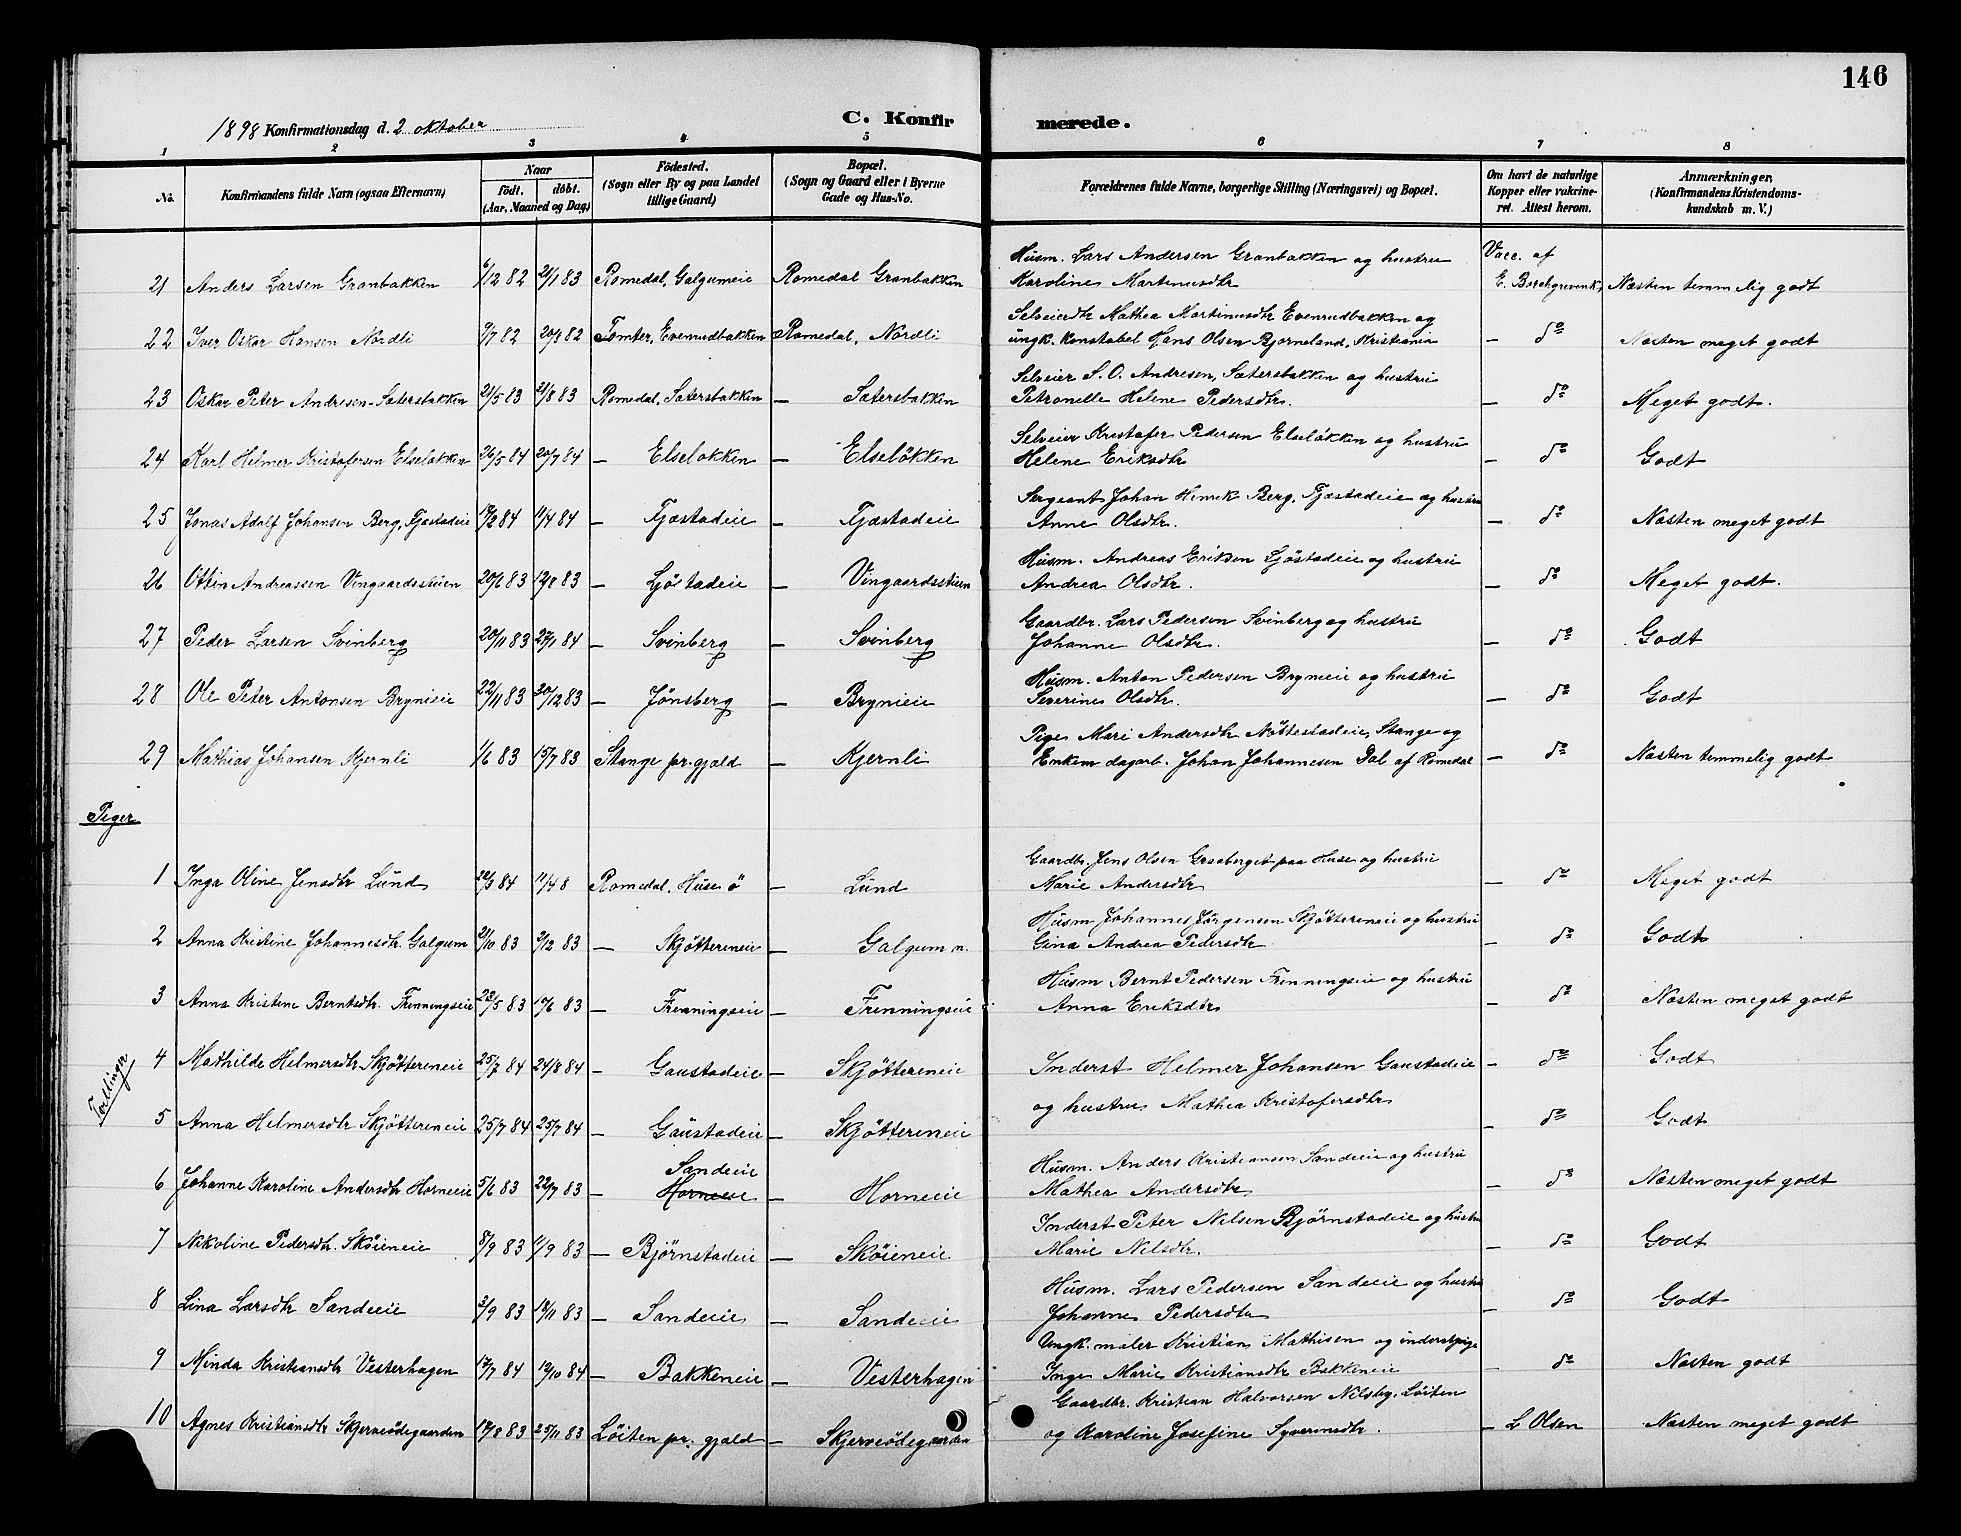 146
1898 Konfirmationsdag d. 2 oktober C. Konfirmerede.
1 2 3 4 5 6 7 8
No. Konfirmandens fulde Navn (ogsaa Efternavn) Naar födt. döbt. (Aar, Maaned og Dag) Födested. (Sogn eller By og paa Landet tillige Gaard) Bopæl. (Sogn og Gaard eller i Byerne Gade og Hus-No. Forældrenes fulde Navne, borgerlige Stilling (Næringsvei) og Bopæl. Om havt de naturlige Kopper eller vakcineret. Attest herom. Anmærkninger, (Konfirmandens Kristendomskundskab m. V.)
21 Anders Larsen Granbakken 6/12 82 21/1 83 Romedal, Galgumeie Romedal Granbakken Husm. Lars Andersen Granbakken og hustru Karoline Martinusdtr Vacc. af E. Borchgrevenk Næsten temmelig godt
22 Iver Oskar Hansen Nordli 9/7 82 20/8 82 Tomter, Evenrudbakken Romedal, Nordli Selveierdtr Mathea Martinusdtr Evenrudbakken og ungk. Konstabel Hans Olsen Bjorneland, Kristiania – do Næsten meget godt
23 Oskar Peter Andresen Sætersbakken 21/5 83 21/8 83 Romedal, Sætersbakken – Sætersbakken Selveier S. O. Andresen, Sætersbakken og hustru Petronelle Helene Pedersdtr. – do Meget godt.
24 Karl Helmer Kristofersen Elseløkken 26/5 84 20/7 84 – Elseløkken – Elseløkken Selveier Kristofer Pedersen Elseløkken og hustru Helene Eriksdtr – do Godt
25 Jonas Adolf Johansen Berg, Fjæstadeie 17/2 84 11/4 84 – Fjæstadeie – Fjæstadeie Sergeant Johan Henrik Berg, Fjæstadeie og hustru Anne Olsdtr. – do Næsten meget godt
26 Ottin Andreassen Vingaardsstuen 20/6 83 12/8 83 – Ljøstadeie – Vingaardsstuen Husm. Andreas Eriksen Ljøstadeie og hustru Andrea Olsdtr. – do Meget godt.
27 Peder Larsen Svinberg 20/11 83 27/1 84 – Svinberg – Svinberg Gaardbr. Lars Pedersen Svinberg og hustru Johanne Olsdtr. – do Godt
28 Ole Peter Antonsen Brynieie 22/11 83 30/12 83 – Jønsberg – Brynieie Husm. Anton Pedersen Brynieie og hustru Severine Olsdtr. – do Godt
29 Mathias Johansen Kjernli 1/6 83 15/7 83 Stange pr.gjæld – Kjernli Pige Mari Andersdtr Nøttestadeie, Stange og Enkem dagarb. Johan Johannesen Dal af Romedal – do Næsten temmelig godt
Piger
1 Inga Oline Jensdtr Lund 11/4 8 Romedal, Huse ø – Lund Gaardbr. Jens Olsen Graaberget paa Huse og hustru Marie Andersdtr – do Meget godt
2 Anna Kristine Johannesdtr. Galgum 21/10 83 9/12 83 – Skjøttereneie – Galgum n. Husm Johannes Jørgensen Skjøttereneie og hustru Gina Andrea Pedersdtr. – do Godt
3 Anna Kristine Berntsdtr. Frenningseie 22/5 83 10/6 83 – Frenningseie – Frenningseie Husm Bernt Pedersen Frenningseie og hustru Anna Eriksdtr – do Næsten meget godt
Tvillinger
4 Mathilde Helmersdtr Skjøttereneie 25/7 84 24/8 84 – Gaustadeie – Skjøttereneie Inderst Helmer Johansen Gaustadeie – do Godt
5 Anna Helmersdtr Skjøttereneie 25/7 84 25/7 84 – Gaustadeie – Skjøttereneie og hustru Mathea Kristofersdtr – do Godt
6 Johanne Karoline Andersdtr Horneeie 5/6 83 22/7 83 – Sandeeie Horneeie – Horneeie Husm. Anders Kristiansen Sandeeie og hustru Mathea Andersdtr – do Næsten meget godt
7 Nikoline Pedersdtr. Skøieneie 8/9 83 11/9 83 – Bjørnstadeie – Skøieneie Inderst Peter Nilsen Bjørnstadeie og hustru Marie Nilsdtr. – do Godt
8 Lina Larsdtr Sandeeie 3/9 83 18/11 83 – Sandeeie – Sandeeie Husm. Lars Pedersen Sandeeie og hustru Johanne Pedersdtr – do Godt
9 Minda Kristiansdtr Vesterhagen 17/7 84 12/10 84 – Bakkeneie – Vesterhagen Ungk. maler Kristian Mathisen og inderstpige Inge Marie Kristiansdtr Bakkeneie – do Næsten godt
10 Agnes Kristiansdtr Skjerveødegaarden 17/8 83 25/11 83 Løiten pr. gjæld – Skjerveødegaarden Gaardbr. Kristian Halvorsen Nilsby, Løiten og Karoline Josefine Syverinsdtr. – L Olsen Næsten meget godt